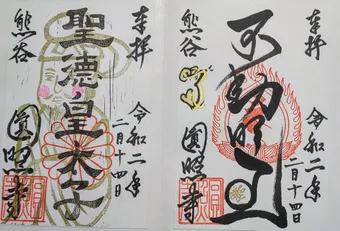 奉拝
聖徳皇太子
熊谷
令和二年
二月十四日
圓照寺
奉拝
不動明王
熊谷
令和二年
二月十四日
圓照寺